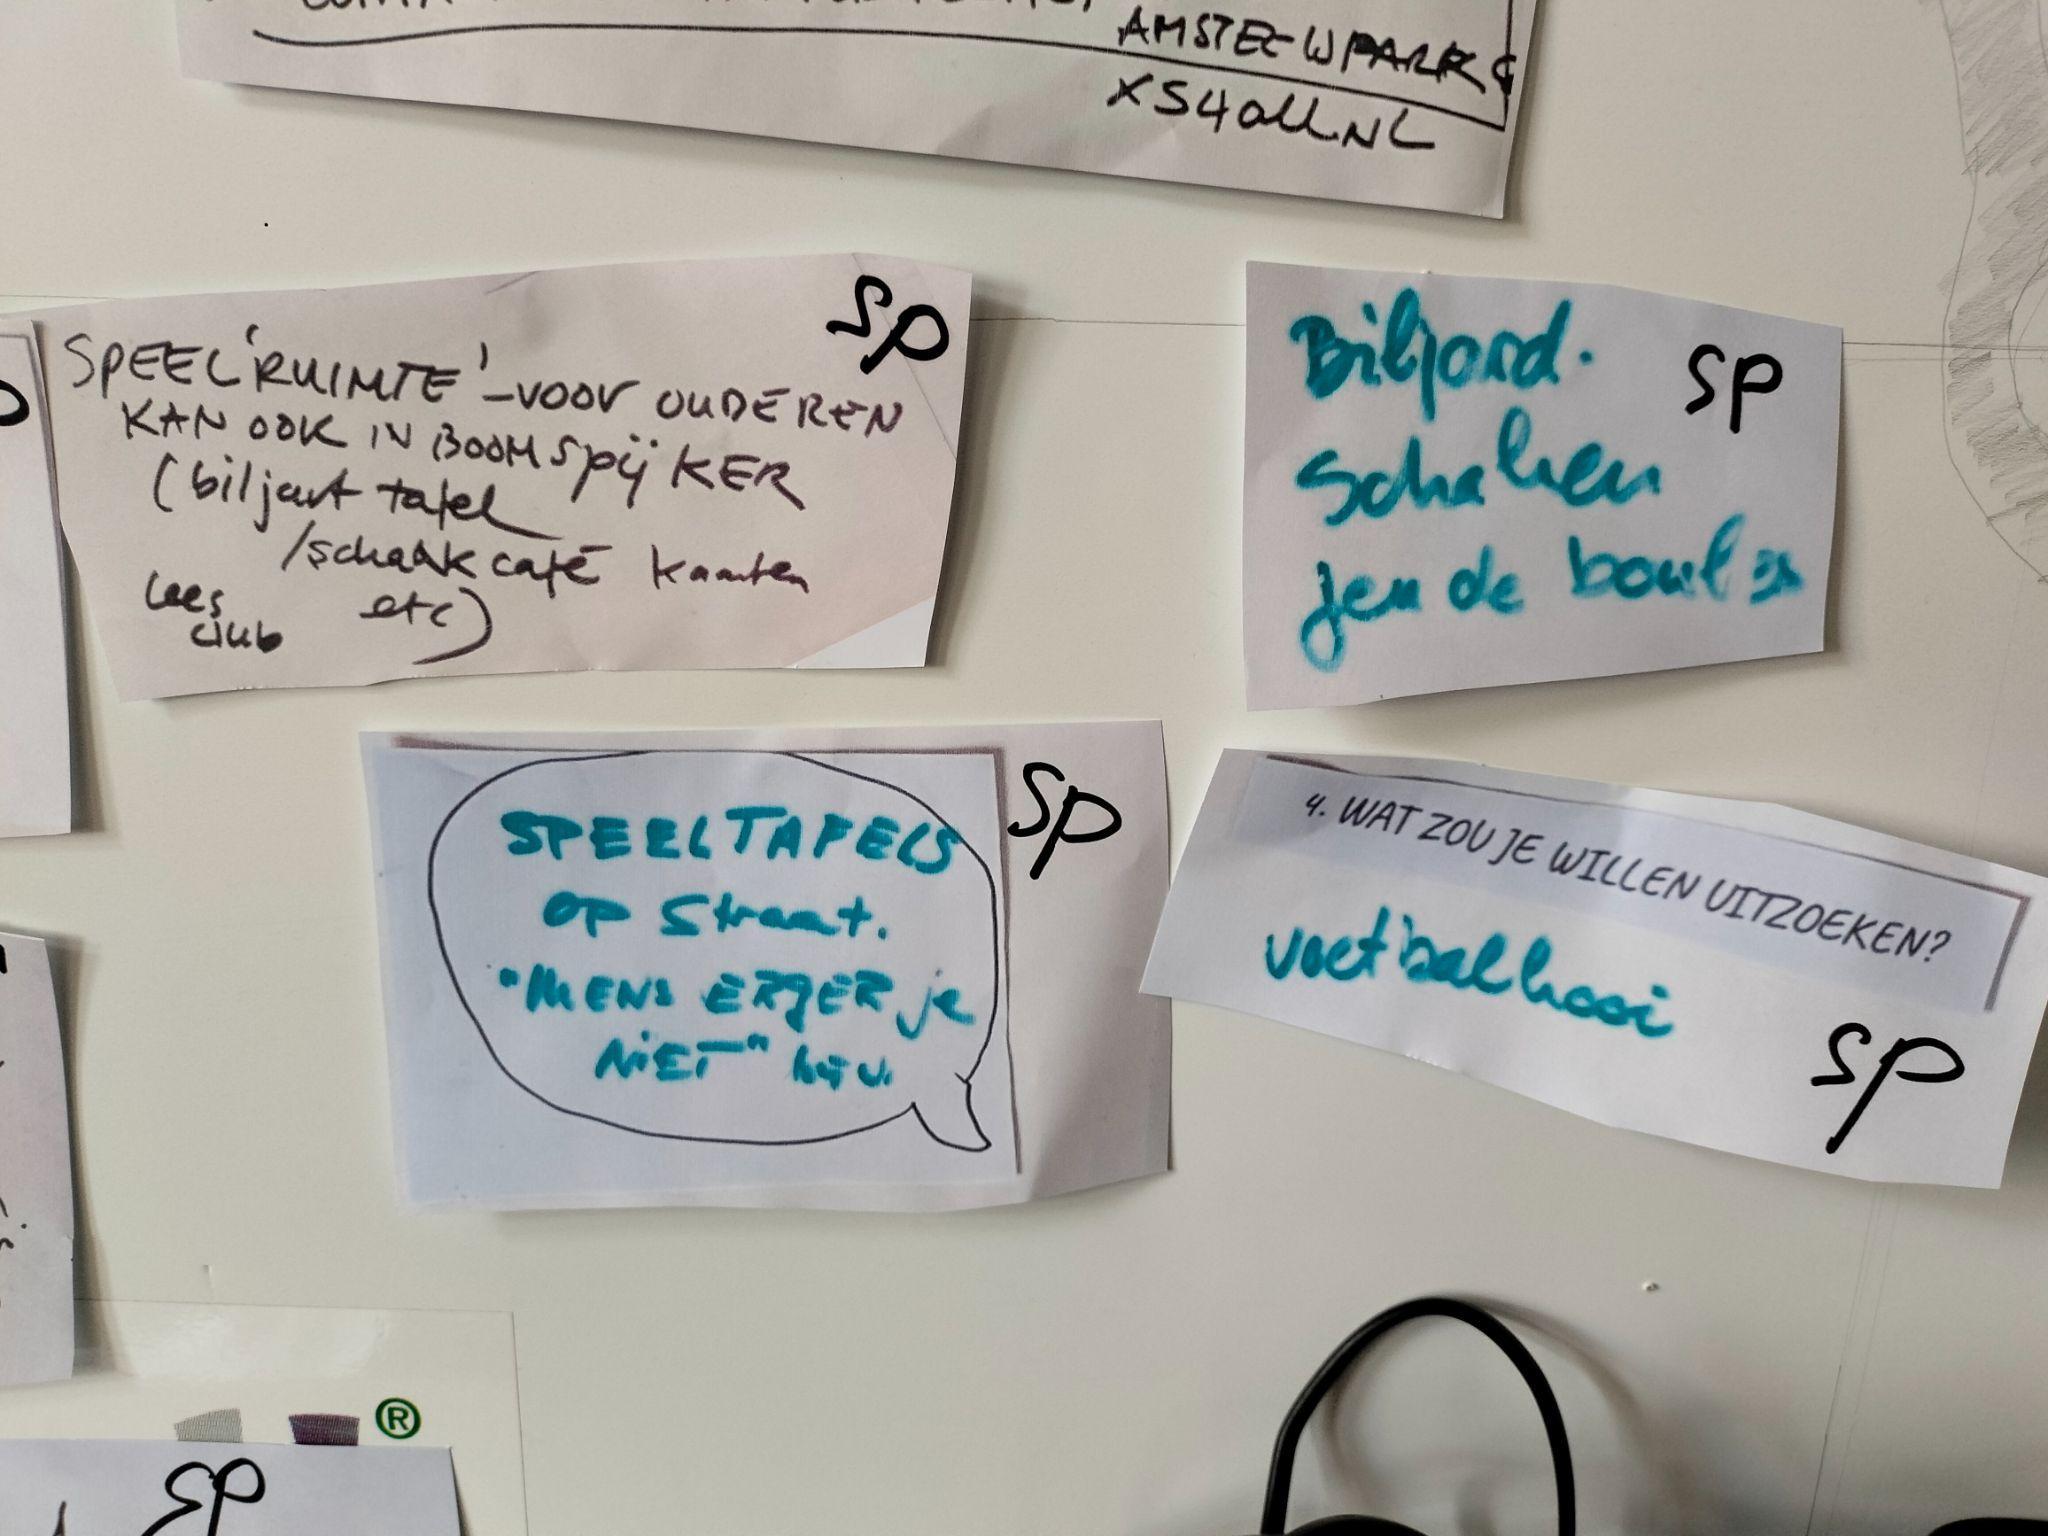 AMSTELWPARK@
XS4all.NL
SP
SPEEL'RUIMTE' - voor OUDEREN
KAN OOK IN BOOMSpijKER
(biljart tafel
/schaakcafé kaarten
etc)
Lees
club
SP
Biljard.
schaken
jeu de boules
SP
SPEELTAFELS
op straat.
"MENS ERGER je
NIET" bijv.
SP
4. WAT ZOU JE WILLEN UITZOEKEN?
voetbalkooi
SP
®
SP